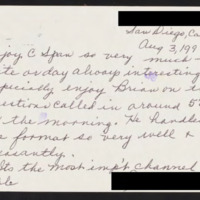 San Diego, Ca
Aug 3, 199
joy C Span so very much
te or day always interesting
specially enjoy Brian on t
estions called in around 5
the morning. He handles
e format so very well &
easantly.
ts the most imp't channel
ble